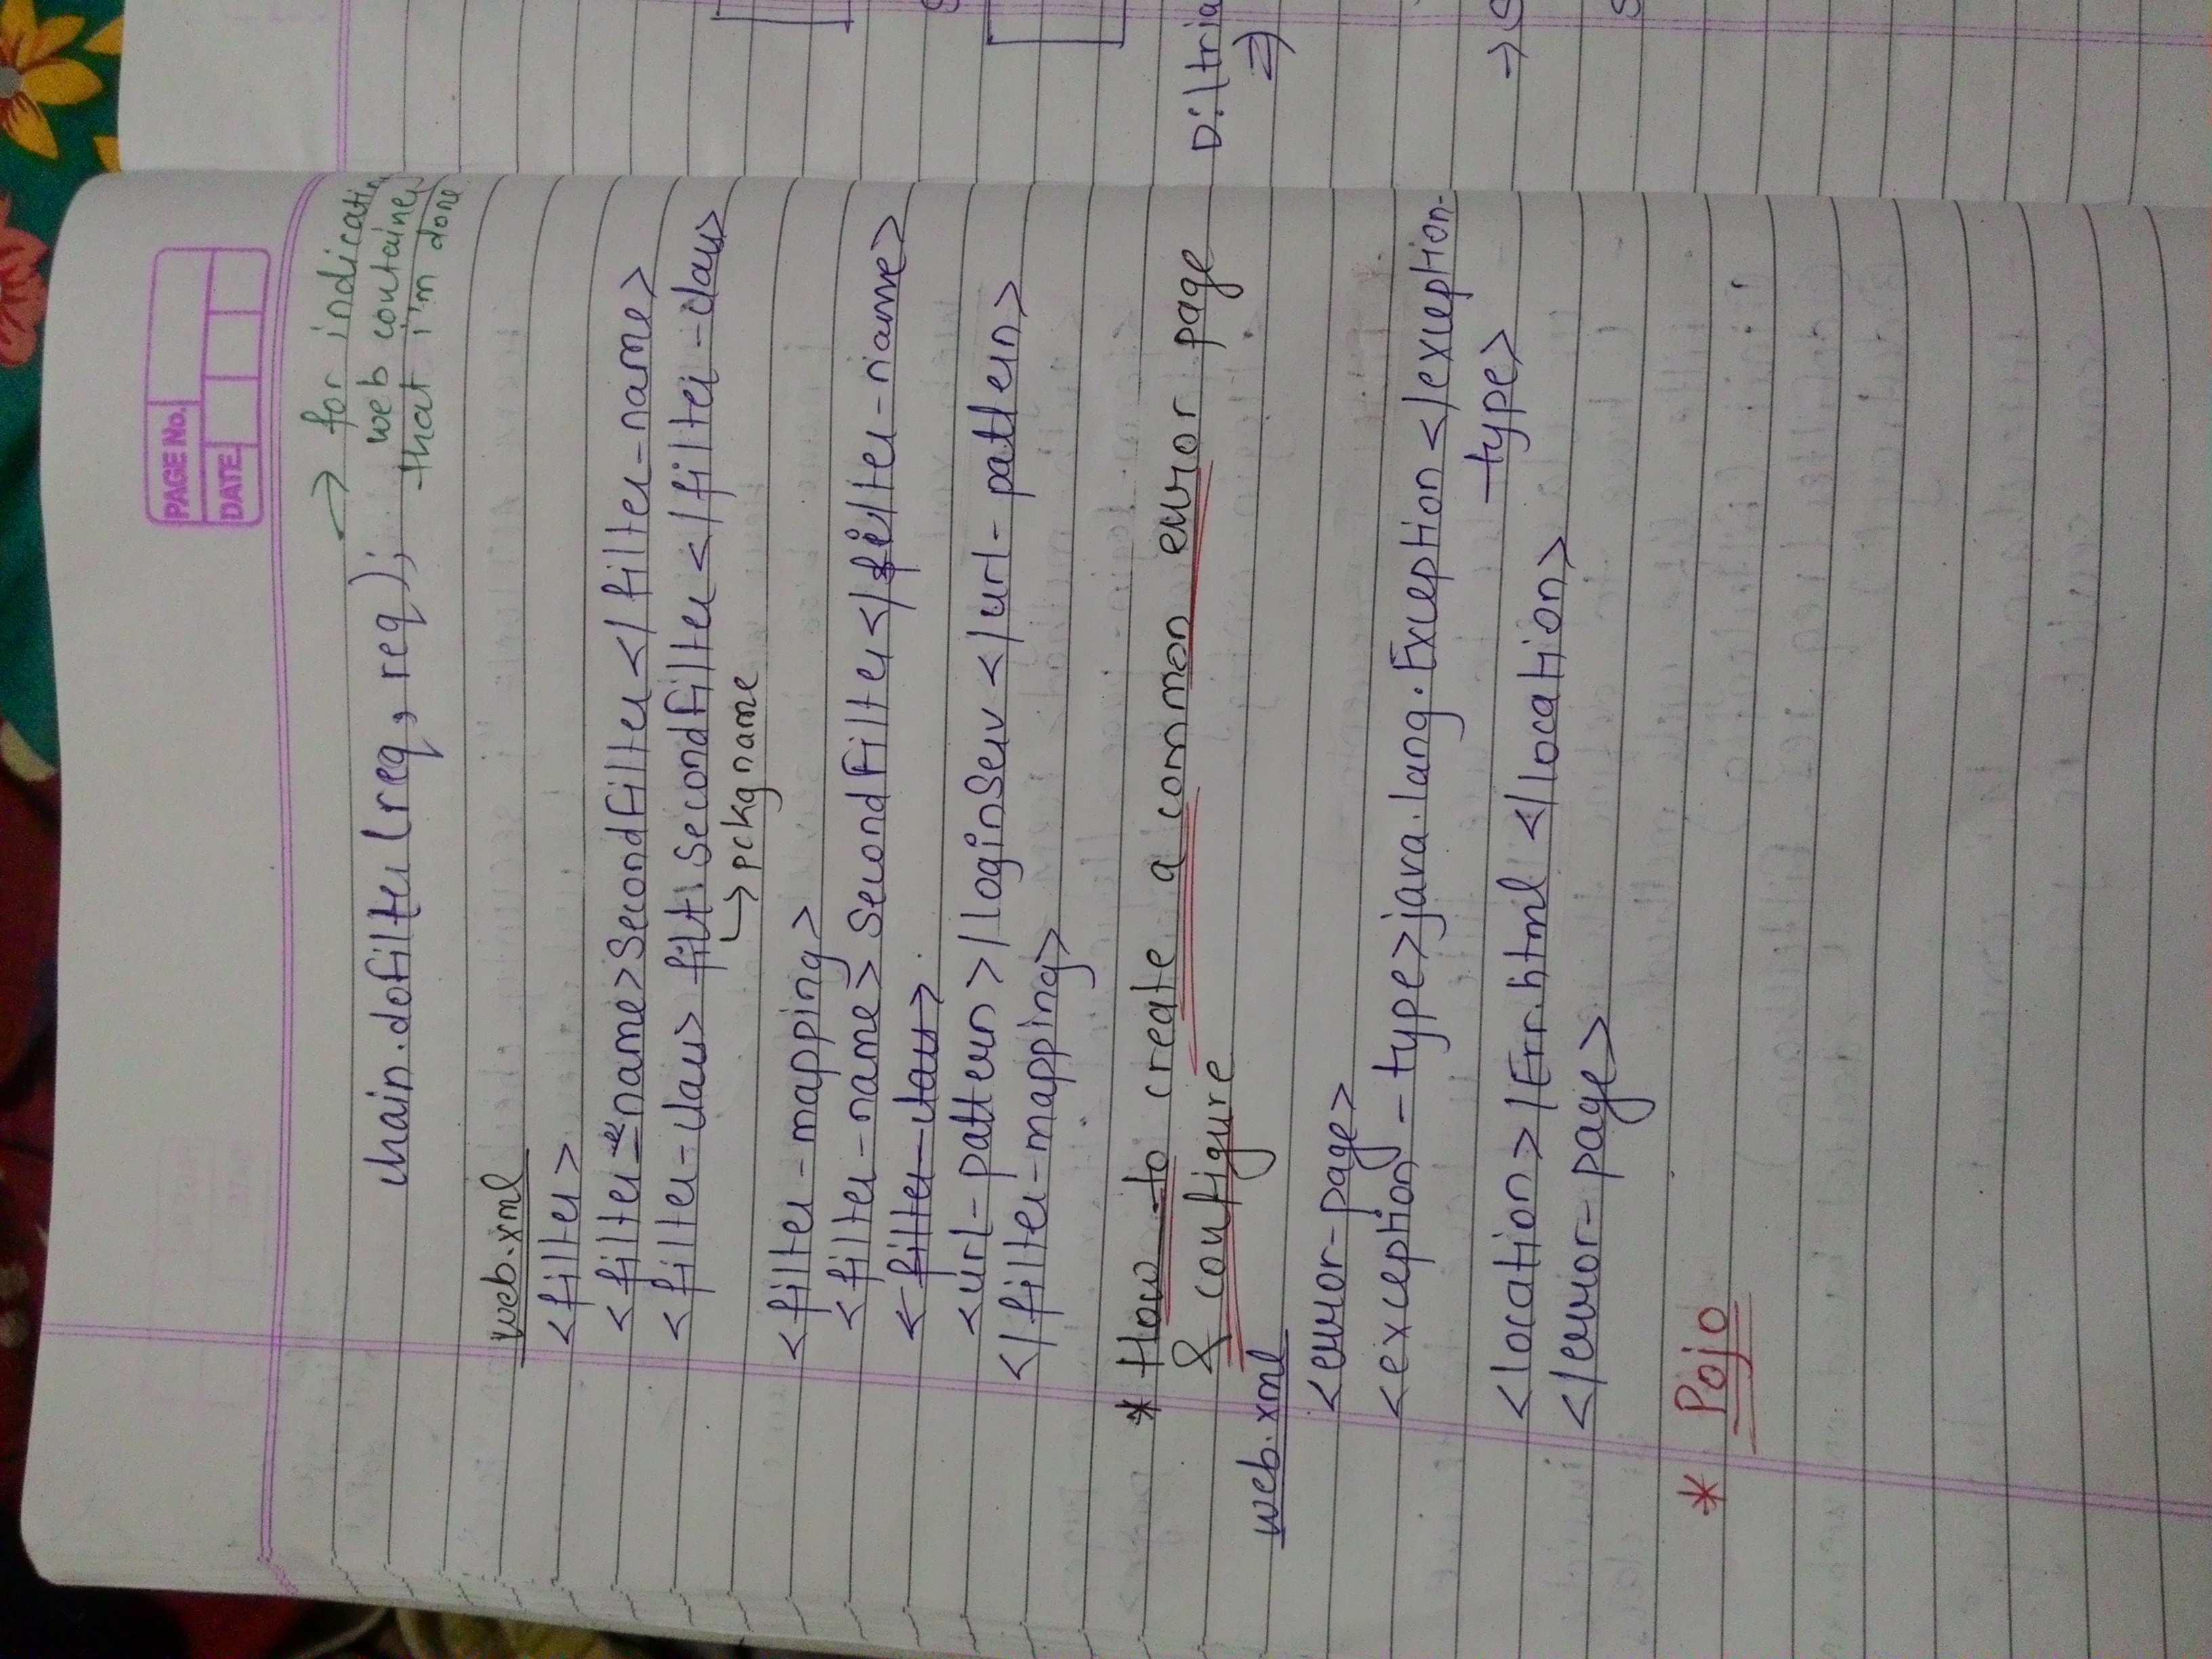 PAGE No.
DATE
chain.doFilter (req, req);
→ for indicatin
web container
that i'm done
web.xml
<filter>
<filter-name>SecondFilter</filter-name>
<filter-class> filt.SecondFilter </filter-class>
↳ pckg name
<filter-mapping>
<filter-name> SecondFilter</filter-name>
<filter-class>
<url-pattern>/loginServ </url-pattern>
</filter-mapping>
* How to create a common error page
& configure
web.xml
<error-page>
<exception-type>java.lang.Exception </exception-
type>
<location>/Err.html </location>
</error-page>
* Pojo
D:\tria
⇒
→ S